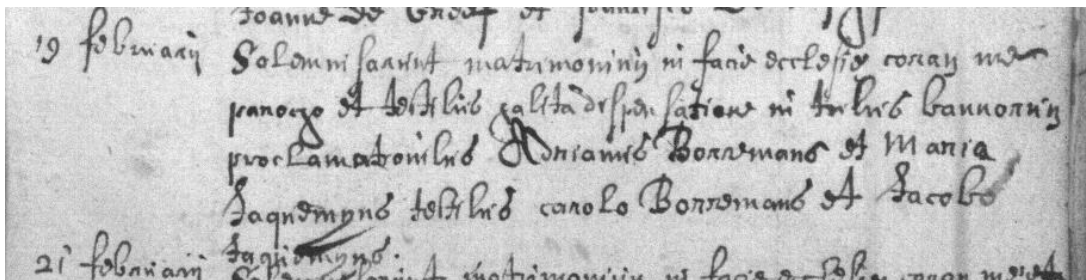 Joanne de Greef et
19 februarij Solemnisarunt matrimoniu in facie ecclesie coram me
parocho et testibus galita dispensatione in tribus bannorum
proclamationibus Adrianus Borremans et Maria
Jaquemyns testibus carolo Borremans et Jacobo
Jaquemyns.
21 februarij Solemnisarunt matrimonium in facie ecclesie coram me